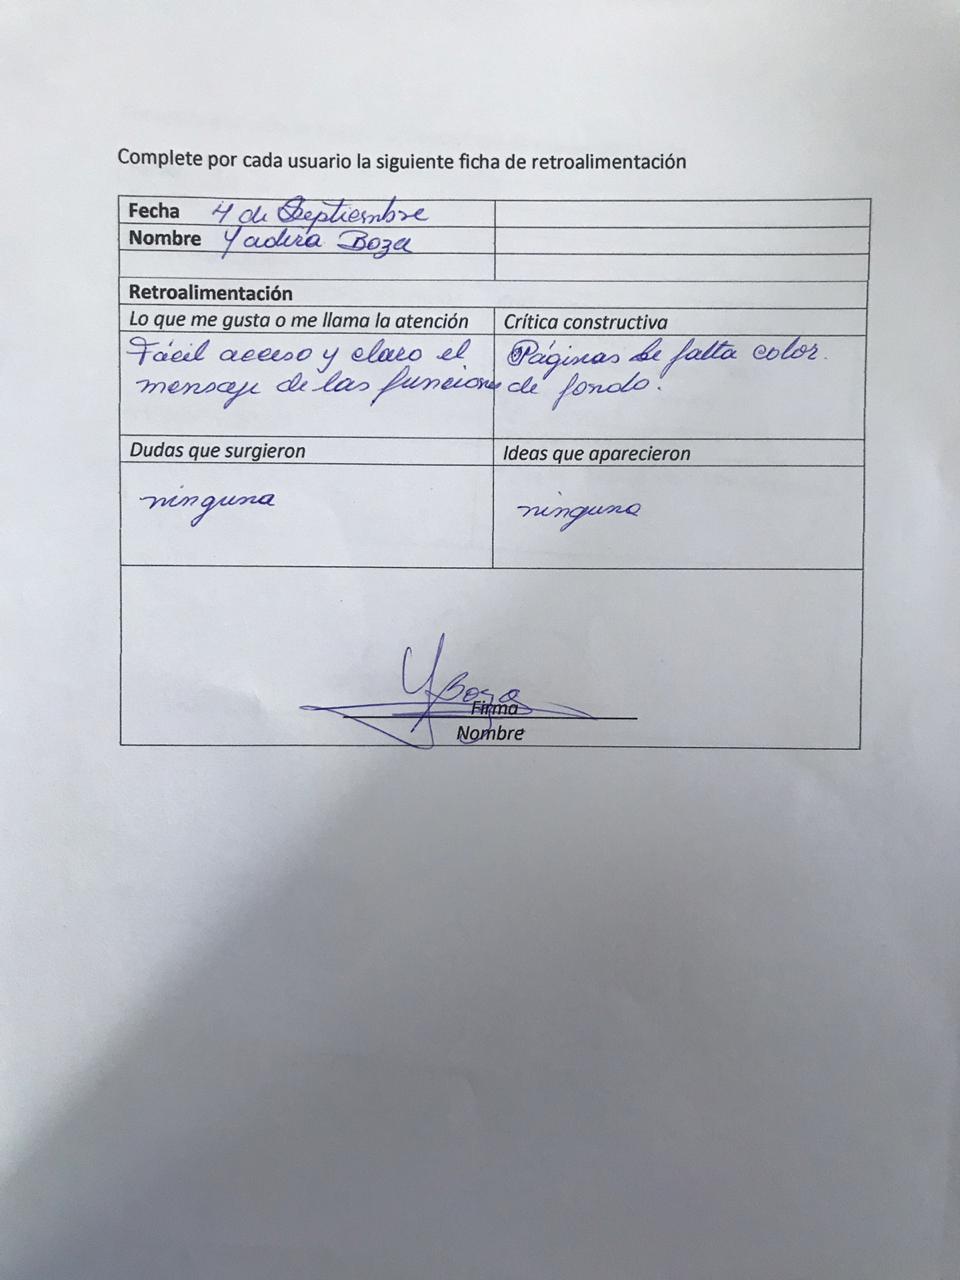 Complete por cada usuario la siguiente ficha de retroalimentación
Fecha 4 de Septiembre
Nombre Yadira Boza
Retroalimentación
Lo que me gusta o me llama la atención
Crítica constructiva
Fácil acceso y claro el
mensaje de las funciones
Páginas le falta color.
de fondo.
Dudas que surgieron
Ideas que aparecieron
ninguna
ninguna
YBoza
Firma
Nombre